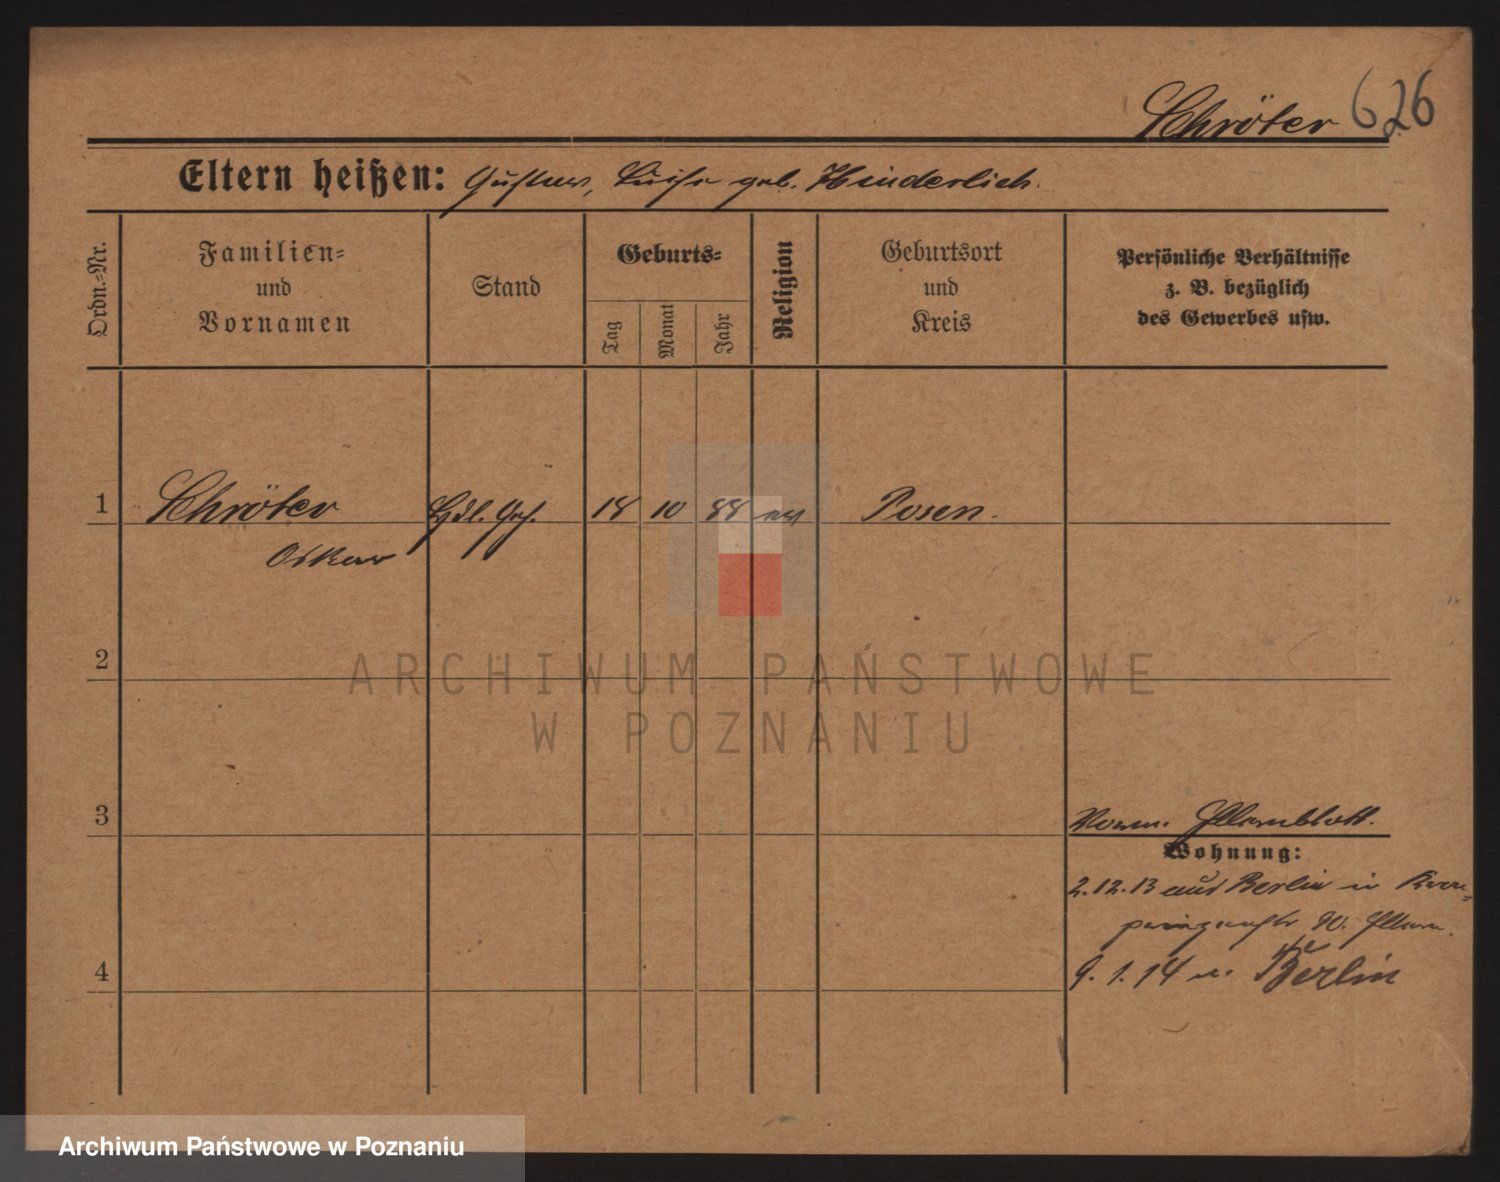 Schröter 626
Eltern heißen: Gustav, Luise geb. Hinderlich.
Ordn.-Nr.
Familien-
und
Vornamen
Stand
Geburts-
Tag
Monat
Jahr
Religion
Geburtsort
und
Kreis
Persönliche Verhältnisse
z. B. bezüglich
des Gewerbes usw.
1 Schröter Hdl. Geh. 18 10 88 ev Posen.
Oskar
2
ARCHIWUM PAŃSTWOWE
W POZNANIU
3
Elternblatt.
Wohnung:
2.12.13 aus Berlin in
W. Eltern.
4
9.1.14 n. Berlin
Archiwum Państwowe w Poznaniu